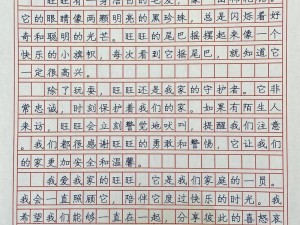 旺旺有一身洁白的毛发，像
它的眼睛像两颗明亮的黑珍珠，总是闪烁着好
奇和聪明的光芒。旺旺的尾巴摆摆起来像一个
快乐的小旗帜，每次看到它摇尾巴，就知道它
一定很高兴。
除了玩耍，旺旺还是我家的守护者。它非
常忠诚，时刻保护着我们的家。如果有陌生人
来访，旺旺会立刻警觉地吠叫，提醒我们注意
。我们都很感谢旺旺的勇敢和警惕，它让我们
的家更加安全和温馨。
我爱我家的旺旺，它是我们家庭的一员。
我会一直照顾它，陪伴它度过快乐的时光。我
希望我们能够一直在一起，分享彼此的喜怒哀